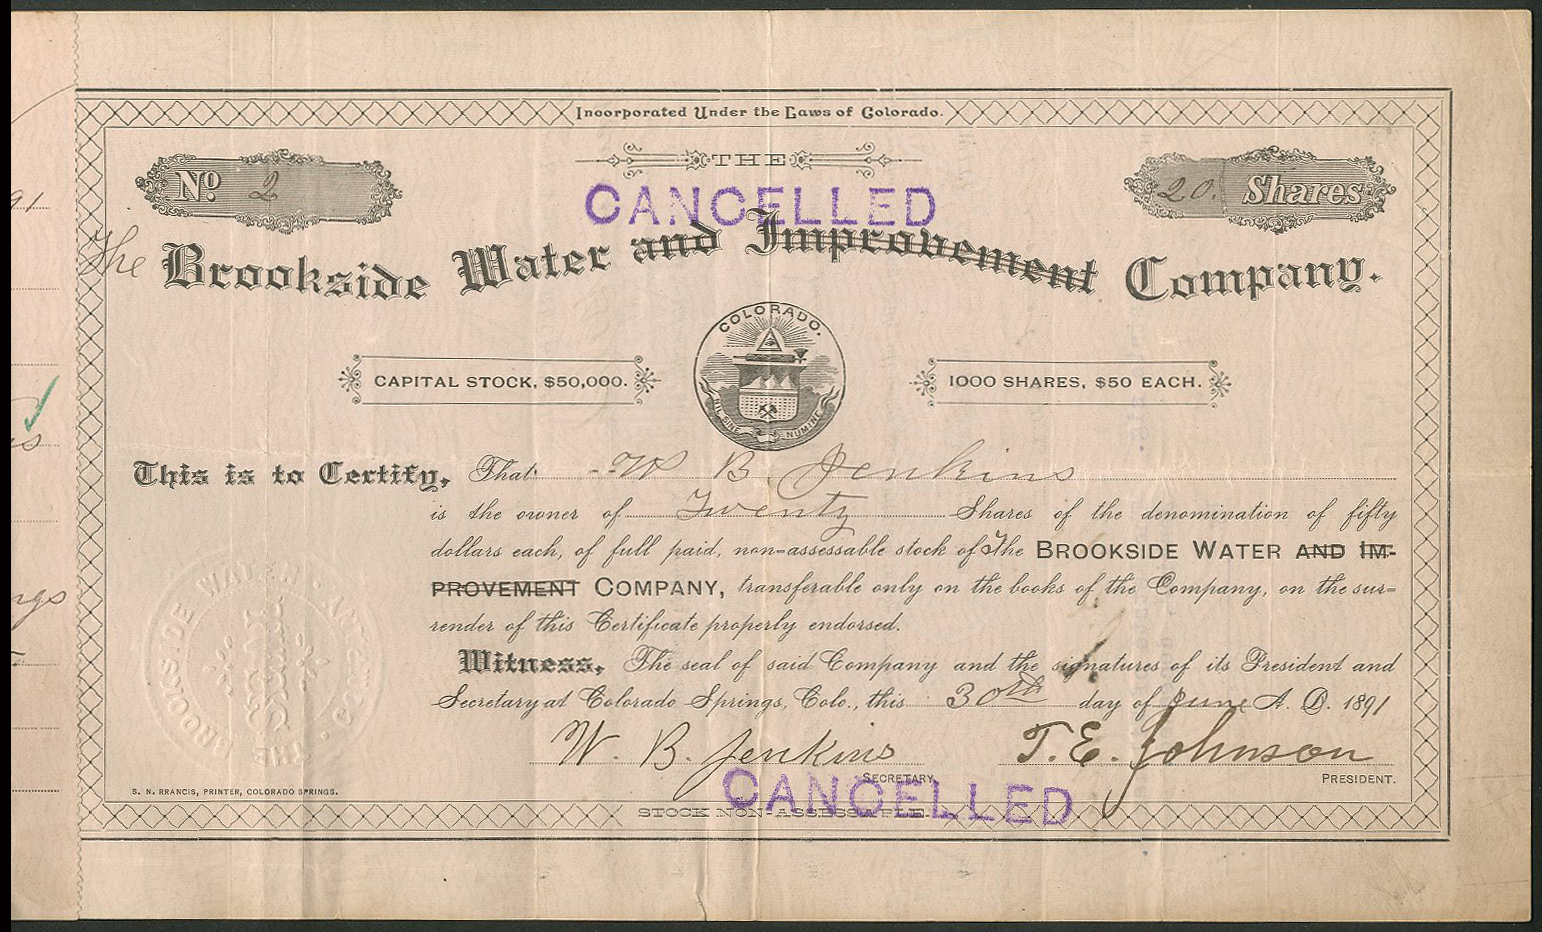 Incorporated Under the Laws of Colorado.
THE
No. 2
20. Shares
CANCELLED
The Brookside Water and Improvement Company.
COLORADO.
NIL SINE NUMINE
CAPITAL STOCK, $50,000.
1000 SHARES, $50 EACH.
This is to Certify, That W B Jenkins
is the owner of Twenty Shares of the denomination of fifty
dollars each, of full paid, non-assessable stock of The BROOKSIDE WATER AND IM-
PROVEMENT COMPANY, transferable only on the books of the Company, on the sur=
render of this Certificate properly endorsed.
Witness, The seal of said Company and the signatures of its President and
Secretary at Colorado Springs, Colo., this 30th day of June A. D. 1891
W. B. Jenkins
T. E. Johnson
SECRETARY.
PRESIDENT.
CANCELLED
S. N. FRANCIS, PRINTER, COLORADO SPRINGS.
STOCK NON-ASSESSABLE.
THE BROOKSIDE WATER AND
91
ngs